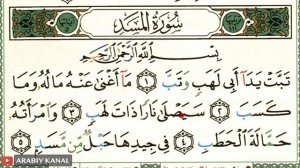 سُورَةُ الْمَسَدِ
بِسْمِ اللَّهِ الرَّحْمَٰنِ الرَّحِيمِ
تَبَّتْ يَدَا أَبِي لَهَبٍ وَتَبَّ ١ مَا أَغْنَىٰ عَنْهُ مَالُهُ وَمَا
كَسَبَ ٢ سَيَصْلَىٰ نَارًا ذَاتَ لَهَبٍ ٣ وَامْرَأَتُهُ
حَمَّالَةَ الْحَطَبِ ٤ فِي جِيدِهَا حَبْلٌ مِّن مَّسَدٍ ٥
ARABIY KANAL